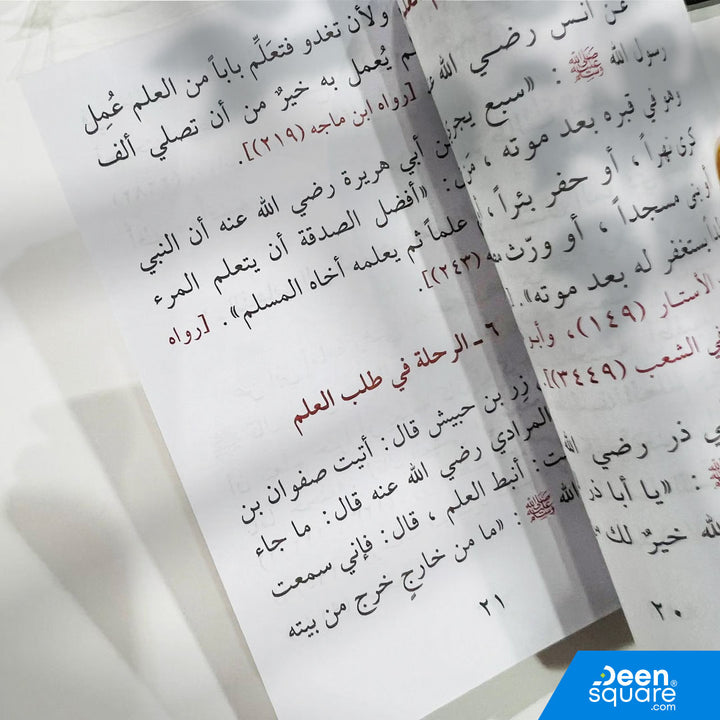 عن أنس رضي الله
رسول الله ﷺ : «سبع يجري
وهو في قبره بعد موته ،
كرى نهراً ، أو حفر بئراً ،
أو بنى مسجداً ، أو ورّث
يستغفر له بعد موته».
الأستار (١٤٩)، وأبو
في الشعب (٣٤٤٩)].
ذر رضي الله
: «يا أبا ذر
الله خيرٌ لك
٢٠
ولأن تغدو فتعَلِّم باباً من العلم عُمِل
يُعمل به خيرٌ من أن تصلي ألف
[رواه ابن ماجه (٢١٩)].
أبي هريرة رضي الله عنه أن النبي
«أفضل الصدقة أن يتعلم المرء
علماً ثم يعلمه أخاه المسلم». [رواه
(٢٤٣)].
٦ ـ الرحلة في طلب العلم
زِر بن حبيش قال: أتيت صفوان بن
المرادي رضي الله عنه قال: ما جاء
أنبط العلم ، قال: فإني سمعت
الله ﷺ : «ما من خارجٍ خرج من بيته
٢١
Deen
square
.com